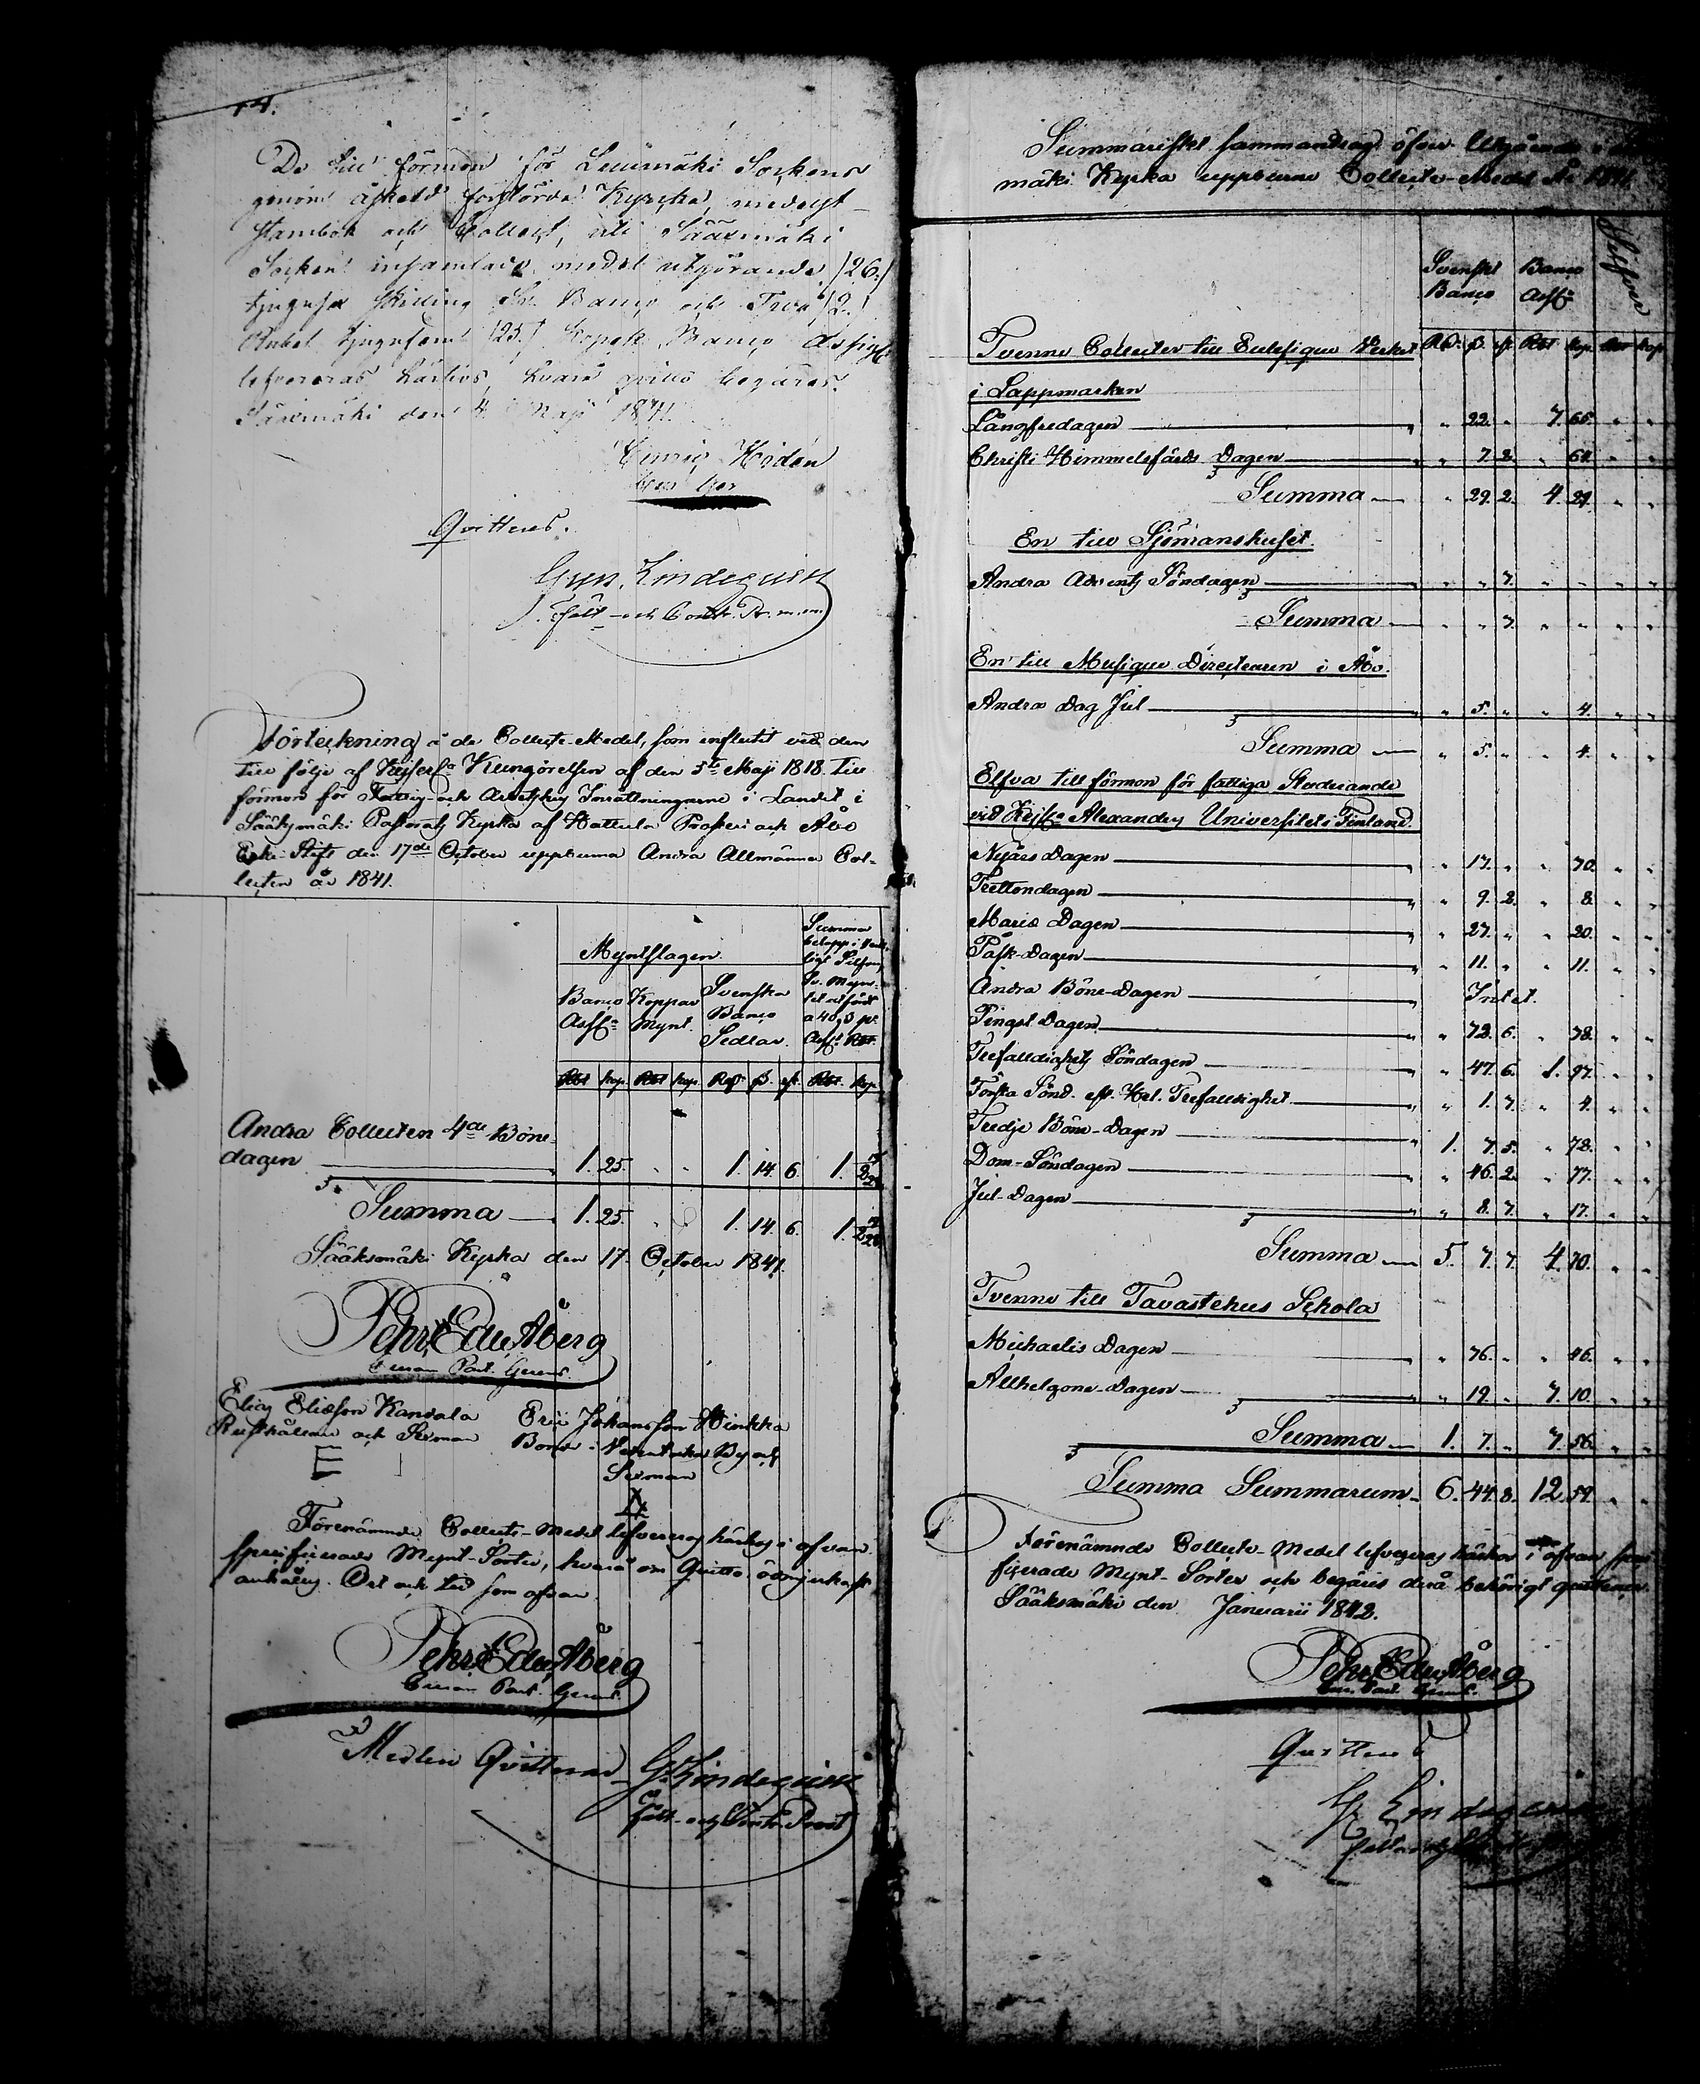 14.
De till förmon för Lewmäki Sockens
genom åskeld förstörda Kyrcka, medelst
stambok och Collect, uti Sääxmäki
Socken insamlade medel utgörande /26/
tjugusex skilling Sv. Banco och Två /2/
Rubel tjugufem /25/ Kopek Banco Assign.
lefvereras härhos, hvarå qvitto begäres.
Sääxmäki den 4 Maji 1841.
Henric Hedén
Qvitteras.
Gust. Lindequist
Fält- och Contr. Pr. m.m.
Förteckning å de Collecte-Medel, som influtit vid den
till följe af Kejserl:a Kungörelsen af den 5:te Maji 1818 till
förmon för Fattig- och Arbetshus Inrättningarne i Landet i
Sääksmäki Pastorats Kyrka af Hattula Prosteri och Åbo
Erke-Stift den 17de October uppburna Andra Allmänna Col-
lecten år 1841.
Myntslagen.
Summa
belopp i
Silfver
Sv. Myn-
tet
a 40 ß pr
Banco Koppar Svenska
Assf:r Mynt. Banco
Sedlar.
Rbl kop. Rbl kop. Rdr ß. rst. Rbl. kop.
Andra Collecten 4de Böne-
dagen 1. 25. " " 1. 14. 6. 1.
Summa 1. 25. " " 1. 14. 6. 1.
Sääksmäki Kyrka den 17. October 1841.
Pehr Edv. Åberg
Curam Past. Gerens.
Elias Eliæson Kandola Eric Johansson Hinkka
Rusthållare och Sexman Bonde i By och
Sexman
Förenämnde Collecte-Medel lefvereras härhos i ofvan
specificerade Mynt-Sorter, hvarå om Quitto ödmjukast
anhålles. Ort och tid som ofvan.
Pehr Edv. Åberg
Curam Past. Gerens.
Medlen Qvitteras G. Lindequist
Fält- och Contr. Prost
Summariskt sammandrag öfver Utgående i
mäki Kyrka uppburne Collecte-Medel År 1841.
Svenskt Banco Silfver
Banco Assf:r
Tvenne Collecter till Ecclesique Verket Rd. ß. rst. Rbl. kop. Rbl kop.
i Lappmarken
Långfredagen " 22. " 7. 65. " "
Christi Himmelsfärds Dagen " 7. 2. " 64. " "
Summa " 29. 2. 4. 29. " "
En till Sjömanshuset.
Andra Advents Söndagen " " 7. " " " "
Summa " " 7. " " " "
En till Musique Directeuren i Åbo.
Andra Dag Jul " 5. " " 4. " "
Summa " 5. " " 4. " "
Elfva till förmon för fattiga Studerande
vid Kejs:a Alexanders Universitet i Finland.
Nyårs Dagen " 17. " " 70. " "
Trettondagen " 9. 2. " 8. " "
Mariæ Dagen " 27. " " 20. " "
Påsk-Dagen " 11. " " 11. " "
Andra Böne-Dagen Intet.
Pingst Dagen " 72. 6. " 78. " "
Trefaldighets Söndagen " 47. 6. 1. 97. " "
Första Sönd. eft. Hel. Trefaldighet " 1. 7. " 4. " "
Tredje Böne-Dagen 1. 7. 5. " 78. " "
Dom-Söndagen " 46. 2. " 77. " "
Jul-Dagen " 8. 7. " 17. " "
Summa 5. 7. 7. 4. 70. " "
Tvenne till Tavastehus Schola
Michaelis Dagen " 76. " " 46. " "
Allhelgona-Dagen " 19. " 7. 10. " "
Summa 1. 7. " 7. 56. " "
Summa Summarum 6. 44. 8. 12. 59. " "
Förenämnde Collecte-Medel lefvereras härhos i ofvan speci-
ficerade Mynt-Sorter och begäres derå behörigt quittence.
Sääksmäki den Januarii 1842.
Pehr Edv. Åberg
Cur. Past. Gerens.
Quitteras
G. Lindequist